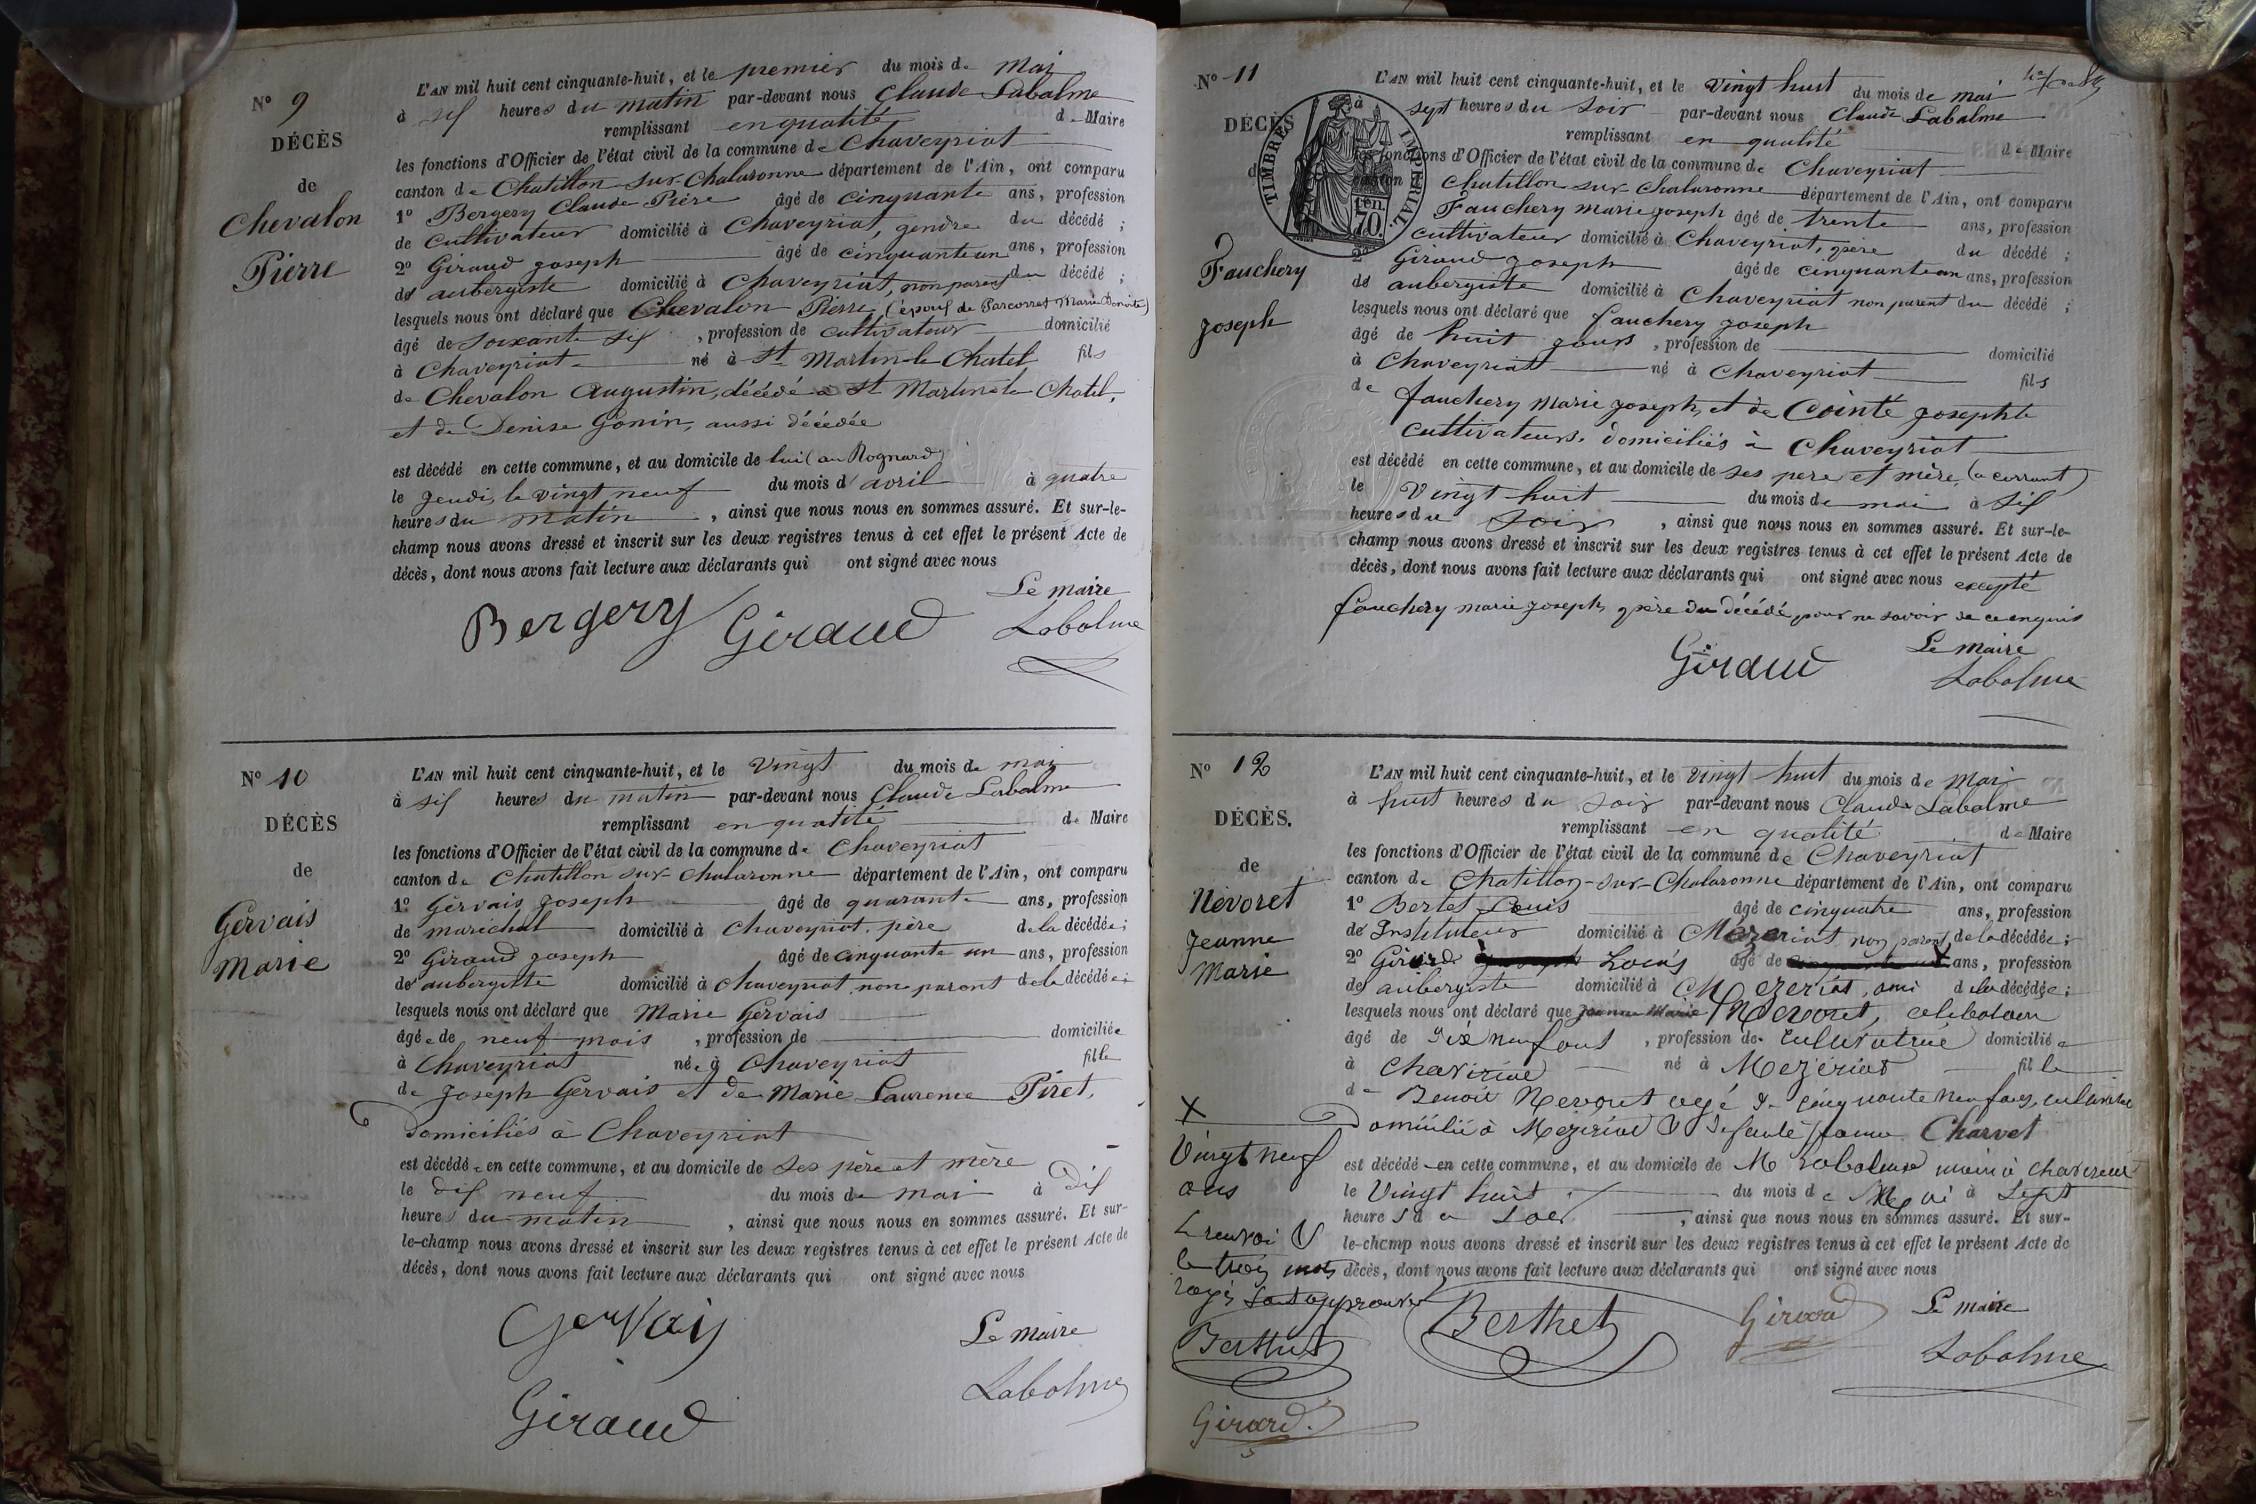 N° 9
DÉCÈS
de
Chevalon
Pierre
L'AN mil huit cent cinquante-huit, et le premier du mois de mai
à six heures du matin par-devant nous Claude Labalme
remplissant en qualité de Maire
les fonctions d'Officier de l'état civil de la commune de Chaveyriat
canton de Chatillon sur Chalaronne département de l'Ain, ont comparu
1° Bergery Claude Pière âgé de cinquante ans, profession
de cultivateur domicilié à Chaveyriat, gendre du décédé ;
2° Giraud joseph âgé de cinquante un ans, profession
de aubergiste domicilié à Chaveyriat non parent du décédé ;
lesquels nous ont déclaré que Chevalon Pierre (époux de Marie Benoite)
âgé de soixante six , profession de cultivateur domicilié
à Chaveyriat né à St Martin le Chatel fils
de Chevalon Augustin, décédé a St Martin le Chatel,
et de Denise Gonin, aussi décédée
est décédé en cette commune, et au domicile de lui (au Rognard)
le jeudi, le vingt neuf du mois d'avril à quatre
heures du matin , ainsi que nous nous en sommes assuré. Et sur-le-
champ nous avons dressé et inscrit sur les deux registres tenus à cet effet le présent Acte de
décès, dont nous avons fait lecture aux déclarants qui ont signé avec nous
Le maire
Bergery Giraud Labalme
N° 10
DÉCÈS
de
Gervais
Marie
L'AN mil huit cent cinquante-huit, et le vingt du mois de mai
à six heures du matin par-devant nous Claude Labalme
remplissant en qualité de Maire
les fonctions d'Officier de l'état civil de la commune de Chaveyriat
canton de Chatillon sur Chalaronne département de l'Ain, ont comparu
1° Gervais joseph âgé de quarante ans, profession
de maréchal domicilié à Chaveyriat, père de la décédée ;
2° Giraud joseph âgé de cinquante un ans, profession
de aubergiste domicilié à Chaveyriat non parent de la décédée ;
lesquels nous ont déclaré que Marie Gervais
âgée de neuf mois , profession de domiciliée
à Chaveyriat née à Chaveyriat fille
de Joseph Gervais et de Marie Laurence Piret,
domiciliés à Chaveyriat
est décédée en cette commune, et au domicile de ses père et mère
le dix neuf du mois de mai à dix
heures du matin , ainsi que nous nous en sommes assuré. Et sur-
le-champ nous avons dressé et inscrit sur les deux registres tenus à cet effet le présent Acte de
décès, dont nous avons fait lecture aux déclarants qui ont signé avec nous
Gervais
Le maire
Labalme
Giraud
N° 11
DÉCÈS
de
Fauchery
joseph
TIMBRE IMPÉRIAL.
cen.
70.
L'AN mil huit cent cinquante-huit, et le vingt huit du mois de mai
à sept heures du soir par-devant nous Claude Labalme
remplissant en qualité de Maire
les fonctions d'Officier de l'état civil de la commune de Chaveyriat
canton Chatillon sur Chalaronne département de l'Ain, ont comparu
Fauchery marie joseph âgé de trente ans, profession
cultivateur domicilié à Chaveyriat, père du décédé ;
2° Giraud joseph âgé de cinquante un ans, profession
de aubergiste domicilié à Chaveyriat non parent du décédé ;
lesquels nous ont déclaré que fauchery joseph
âgé de huit jours , profession de domicilié
à Chaveyriat né à Chaveyriat fils
de fauchery marie joseph, et de Cointé josephte
cultivateurs, domiciliés à Chaveyriat
est décédé en cette commune, et au domicile de ses père et mère
le vingt huit du mois de mai à six
heures du soir , ainsi que nous nous en sommes assuré. Et sur-le-
champ nous avons dressé et inscrit sur les deux registres tenus à cet effet le présent Acte de
décès, dont nous avons fait lecture aux déclarants qui ont signé avec nous excepté
fauchery marie joseph, père du décédé, pour ne savoir de ce enquis
Giraud
Le maire
Labalme
N° 12
DÉCÈS.
de
Névoret
Jeanne
Marie
L'AN mil huit cent cinquante-huit, et le vingt huit du mois de Mai
à huit heures du soir par-devant nous Claude Labalme
remplissant en qualité de Maire
les fonctions d'Officier de l'état civil de la commune de Chaveyriat
canton de Chatillon-sur-Chalaronne département de l'Ain, ont comparu
1° Bertet Louis âgé de cinquante ans, profession
de Instituteur domicilié à Mezeriat non parent de la décédée ;
2° Girard Louis âgé de X ans, profession
de aubergiste domicilié à Mezeriat, ami de la décédée ;
lesquels nous ont déclaré que Jeanne Marie Nevoret, celibataire
âgé de dix neuf ans , profession de cultivatrice domiciliée
à Chaviriat né à Mezériat fille
de Benoit Nevoret agé de cinquante neuf ans, cultivateur
Domicilié à Mezeriat & Charvet
est décédé en cette commune, et au domicile de M Labalme maire à chaveriat
le Vingt huit du mois de Mai à Sept
heures du soir , ainsi que nous nous en sommes assuré. Et sur-
le-champ nous avons dressé et inscrit sur les deux registres tenus à cet effet le présent Acte de
décès, dont nous avons fait lecture aux déclarants qui ont signé avec nous
X
Vingt neuf
ans
L renvoi &
le trois mots
rayés sont approuvés
Berthet
Girard.
Berthet Girard Le maire
Labalme